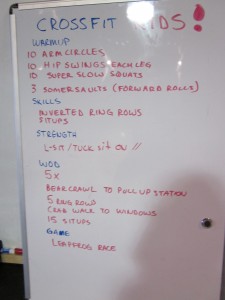 CROSSFIT KIDS!
WARMUP
10 ARM CIRCLES
10 HIP SWINGS EACH LEG
10 SUPER SLOW SQUATS
3 SOMERSAULTS (FORWARD ROLLS)
SKILLS
INVERTED RING ROWS
SITUPS
STRENGTH
L-SIT/TUCK SIT ON //
WOD
5X
BEAR CRAWL TO PULL UP STATION
5 RING ROWS
CRAB WALK TO WINDOWS
15 SITUPS
GAME
LEAPFROG RACE